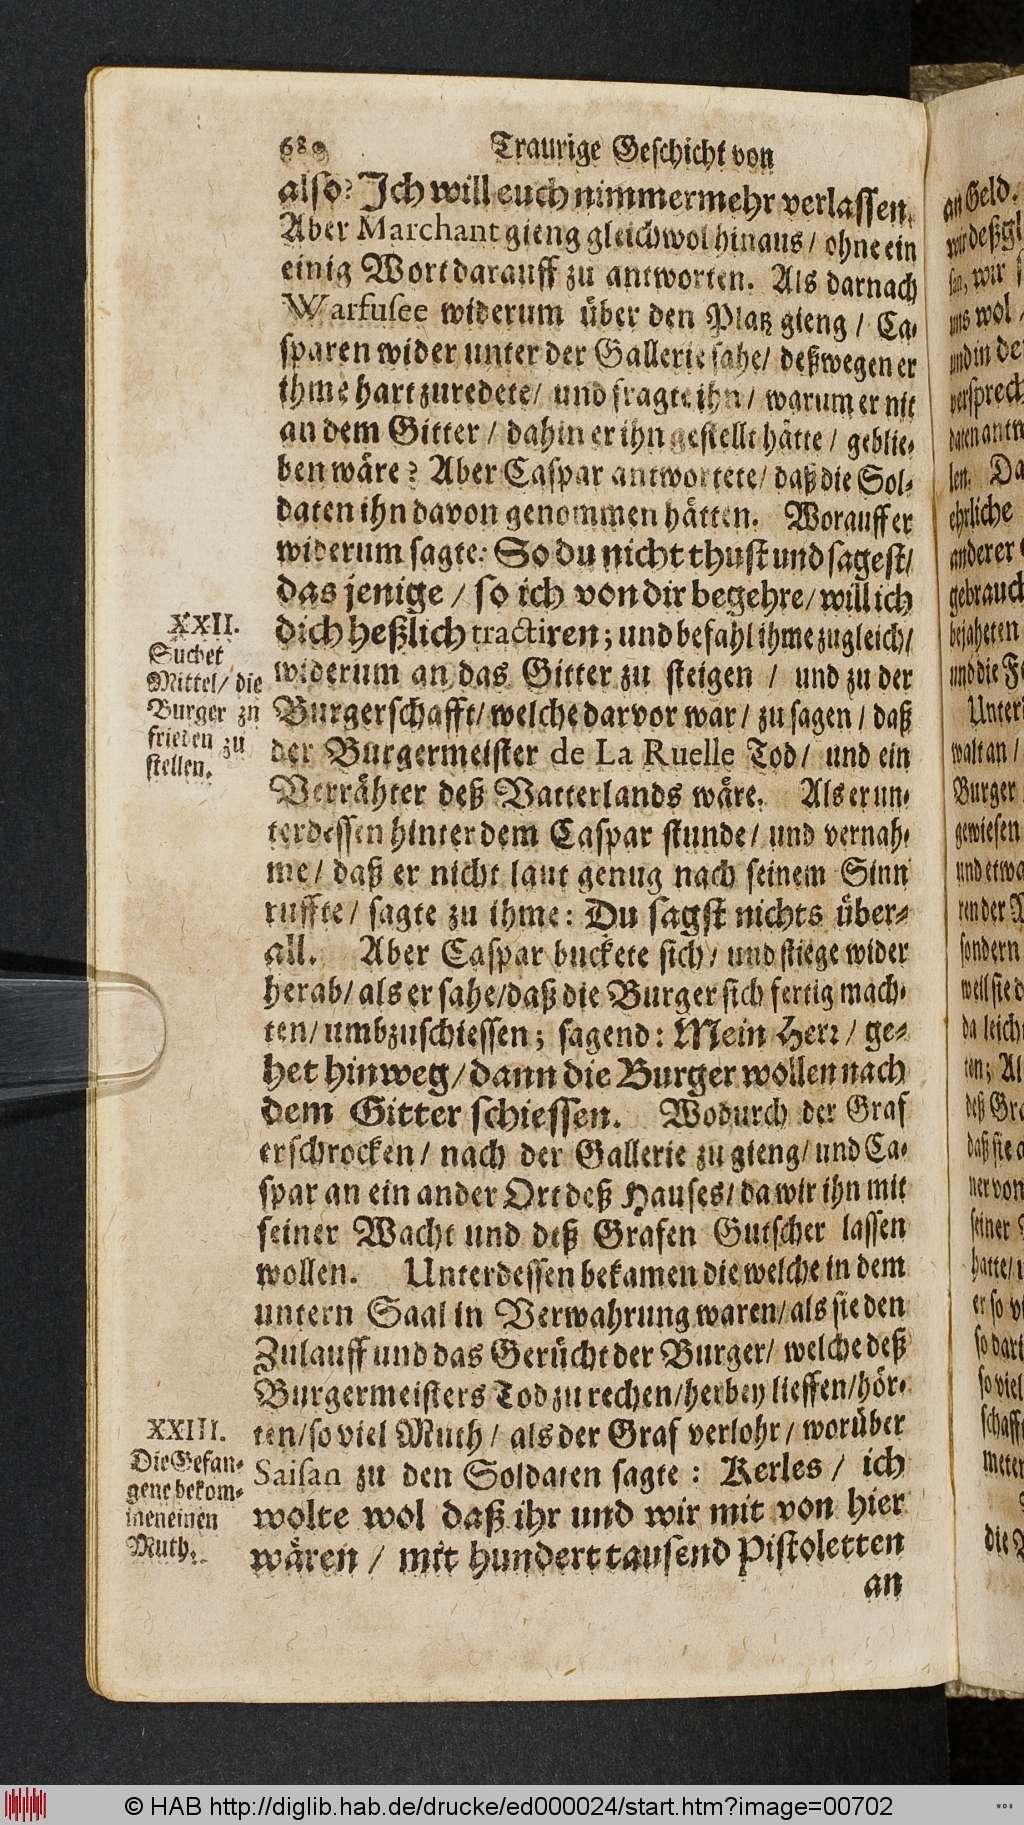 680 Traurige Geschicht von
also? Ich will euch nimmermehr verlassen.
Aber Marchant gieng gleichwol hinaus/ ohne ein
einig Wort darauff zu antworten. Als darnach
Warfusee widerum über den Platz gieng/ Ca-
sparen wider unter der Gallerie sahe/ deßwegen er
ihme hart zuredete/ und fragte ihn/ warum er nit
an dem Gitter/ dahin er ihn gestellt hätte/ geblie-
ben wäre? Aber Caspar antwortete/ daß die Sol-
daten ihn davon genommen hätten. Worauff er
widerum sagte: So du nicht thust und sagest/
das jenige/ so ich von dir begehre/ will ich
dich heßlich tractiren; und befahl ihme zugleich/
widerum an das Gitter zu steigen/ und zu der
Burgerschafft/ welche darvor war/ zu sagen/ daß
der Burgermeister de La Ruelle Tod/ und ein
Verrähter deß Vatterlands wäre. Als er un-
terdessen hinter dem Caspar stunde/ und vernah-
me/ daß er nicht laut genug nach seinem Sinn
ruffte/ sagte zu ihme: Du sagst nichts über-
all. Aber Caspar buckete sich/ und stiege wider
herab/ als er sahe/ daß die Burger sich fertig mach-
ten/ umbzuschiessen; sagend: Mein Herr/ ge-
het hinweg/ dann die Burger wollen nach
dem Gitter schiessen. Wodurch der Graf
erschrocken/ nach der Gallerie zu gieng/ und Ca-
spar an ein ander Ort deß Hauses/ da wir ihn mit
seiner Wacht und deß Grafen Gutscher lassen
wollen. Unterdessen bekamen die welche in dem
untern Saal in Verwahrung waren/ als sie den
Zulauff und das Gerücht der Burger/ welche deß
Burgermeisters Tod zu rechen/ herbey lieffen/ hör-
ten/ so viel Muth/ als der Graf verlohr/ worüber
Saisan zu den Soldaten sagte: Kerles/ ich
wolte wol daß ihr und wir mit von hier
wären/ mit hundert tausend Pistoletten
an
XXII.
Suchet
Mittel/ die
Burger zu
frieden zu
stellen.
XXIII.
Die Gefan-
gene bekom-
men einen
Muth.
an Geld.
wir deßgl
san, wir
uns wol/
und in de
versprech
daten antw
len. Da
ehrliche
anderer
gebrauch
bejaheten
und die F
Unter
walt an/
Burger
gewiesen
und etwa
ren der
sondern
weil sie d
da leich
ten; Al
deß Gra
daß sie a
ner von
seiner
hatte/
er so vi
so dar
so viel
schaff
meter
die
© HAB http://diglib.hab.de/drucke/ed000024/start.htm?image=00702